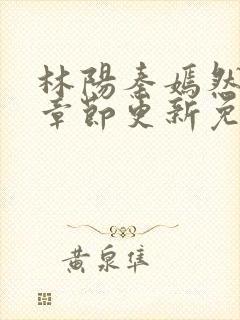 林陽秦嫣然
章節更新免
黄泉隼